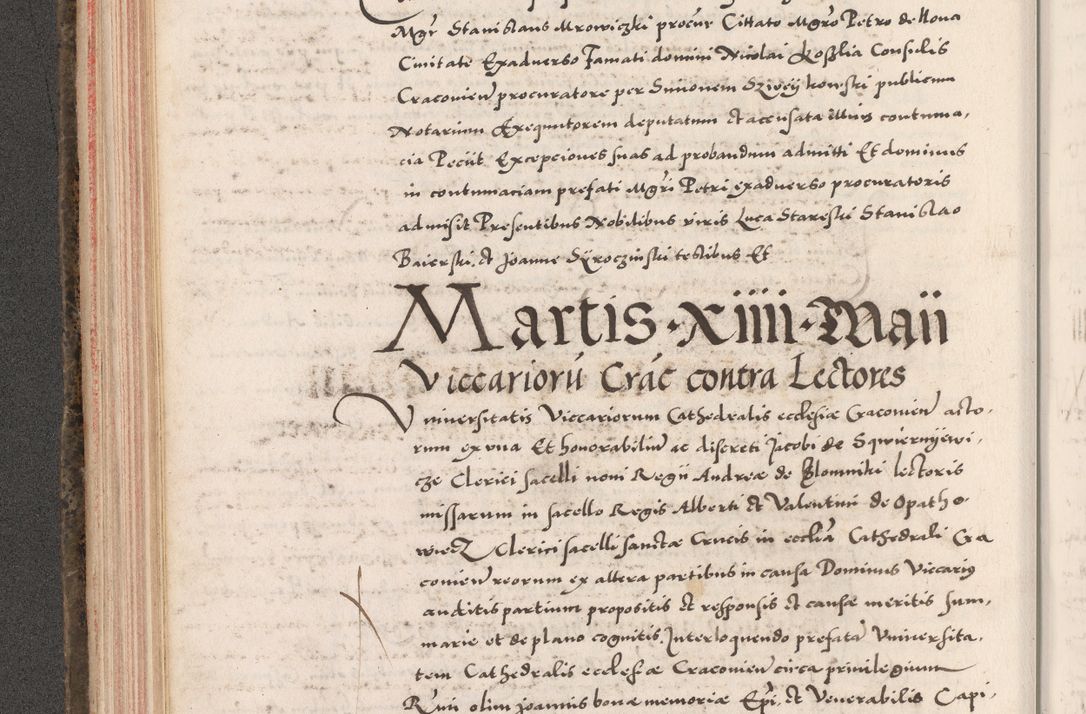 Mgr Stanislaus Mrowiczki procur Cittato Mgro Petro de Nova
Civitate Exadverso Famati domini Nicolai Koßlia Consulis
Cracovien procuratore per Simonem Dzivey kowski publicum
Notarium Exequutorem deputatum et accusata illius contuma,
cia Peciit Excepciones suas ad probandum admitti Et dominus
in contumaciam prefati Mgri Petri exadverso procuratoris
admisit Presentibus Nobilibus viris Luca Stareski Stanislao
Baierski, et Joanne testibus Et
Martis · xiiii · Maii
Viccariorū Crac̄ contra Lectores
Universitatis Viccariorum Cathedralis ecclesiæ Cracovien acto,
rum ex una Et honorabilium ac discreti Jacobi de Sqwiernyewi,
cze Clerici sacelli noni Regii Andreæ de Slomniki lectoris
missarum in sacello Regis Alberti et Valentini de Opatho
wiecz Clerici sacelli sanctæ Crucis in eccl̄ia Cathedrali Cra
covien reorum ex altera partibus in causa Dominus Viccarius
auditis partium propositis et responsis et causæ meritis sum,
marie et de plano cognitis, Interloquendo prefata Universita,
tem Cathedralis ecclesæ Cracovien circa privilegium
Rm̄i olim Joannis bonæ memoriæ Epī, et Venerabilis Capi,